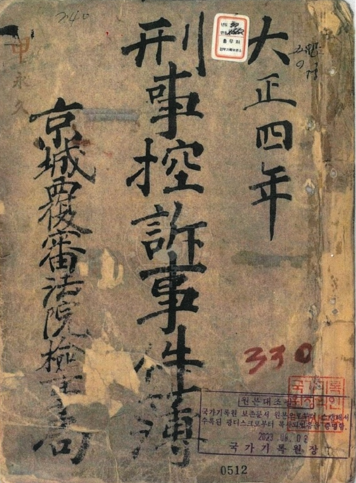 大正四年
刑事控訴事件簿
京城覆審法院檢事局
甲 永久
240
330
원본대조필
국가기록원
2023
국가기록원장
0512